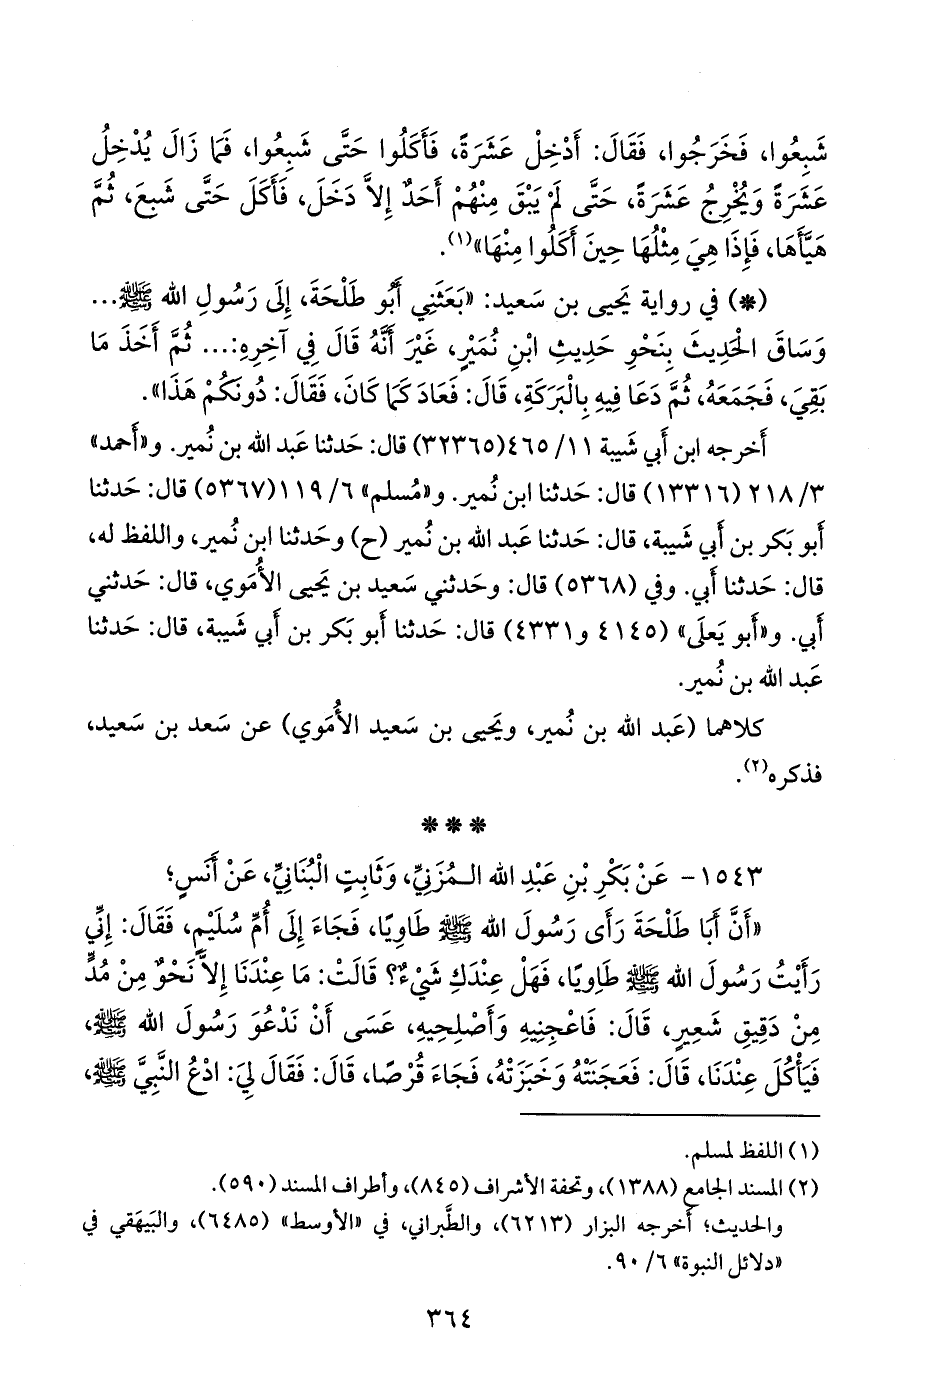 شَبِعُوا، فَخَرَجُوا، فَقَالَ: أَدْخِلْ عَشَرَةً، فَأَكَلُوا حَتَّى شَبِعُوا، فَمَا زَالَ يُدْخِلُ
عَشَرَةً وَيُخْرِجُ عَشَرَةً، حَتَّى لَمْ يَبْقَ مِنْهُمْ أَحَدٌ إِلاَّ دَخَلَ، فَأَكَلَ حَتَّى شَبِعَ، ثُمَّ
هَيَّأَهَا، فَإِذَا هِيَ مِثْلُهَا حِينَ أَكَلُوا مِنْهَا»(١).
(*) في رواية يَحيى بن سَعيد: «بَعَثَنِي أَبُو طَلْحَةَ، إِلَى رَسُولِ الله ﷺ...
وَسَاقَ الْحَدِيثَ بِنَحْوِ حَدِيثِ ابْنِ نُمَيْرٍ، غَيْرَ أَنَّهُ قَالَ فِي آخِرِهِ:... ثُمَّ أَخَذَ مَا
بَقِيَ، فَجَمَعَهُ، ثُمَّ دَعَا فِيهِ بِالْبَرَكَةِ، قَالَ: فَعَادَ كَمَا كَانَ، فَقَالَ: دُونَكُمْ هَذَا».
أَخرجه ابن أَبي شَيبة ١١/ ٤٦٥(٣٢٣٦٥) قال: حَدثنا عَبد الله بن نُمير. و«أَحمد»
٣/ ٢١٨ (١٣٣١٦) قال: حَدثنا ابن نُمير. و«مُسلم» ٦/ ١١٩(٥٣٦٧) قال: حَدثنا
أَبو بَكر بن أَبي شَيبة، قال: حَدثنا عَبد الله بن نُمير (ح) وحَدثنا ابن نُمير، واللفظ له،
قال: حَدثنا أَبي. وفي (٥٣٦٨) قال: وحَدثني سَعيد بن يَحيى الأُمَوي، قال: حَدثني
أَبي. و«أَبو يَعلَى» (٤١٤٥ و٤٣٣١) قال: حَدثنا أَبو بَكر بن أَبي شَيبة، قال: حَدثنا
عَبد الله بن نُمير.
كلاهما (عَبد الله بن نُمير، ويَحيى بن سَعيد الأُمَوي) عن سَعد بن سَعيد،
فذكره(٢).
* * *
١٥٤٣- عَنْ بَكْرِ بْنِ عَبْدِ الله الـمُزَنِيِّ، وَثَابِتٍ الْبُنَانِيِّ، عَنْ أَنَسٍ؛
«أَنَّ أَبَا طَلْحَةَ رَأَى رَسُولَ الله ﷺ طَاوِيًا، فَجَاءَ إِلَى أُمِّ سُلَيْمٍ، فَقَالَ: إِنِّي
رَأَيْتُ رَسُولَ الله ﷺ طَاوِيًا، فَهَلْ عِنْدَكِ شَيْءٌ؟ قَالَتْ: مَا عِنْدَنَا إِلاَّ نَحْوٌ مِنْ مُدِّ
مِنْ دَقِيقِ شَعِيرٍ، قَالَ: فَاعْجِنِيهِ وَأَصْلِحِيهِ، عَسَى أَنْ نَدْعُوَ رَسُولَ الله ﷺ،
فَيَأْكُلَ عِنْدَنَا، قَالَ: فَعَجَنَتْهُ وَخَبَزَتْهُ، فَجَاءَ قُرْصًا، قَالَ: فَقَالَ لِيَ: ادْعُ النَّبِيَّ ﷺ،
(١) اللفظ لمسلم.
(٢) المسند الجامع (١٣٨٨)، وتحفة الأشراف (٨٤٥)، وأطراف المسند (٥٩٠).
والحديث؛ أَخرجه البزار (٦٢١٣)، والطَّبراني، في «الأوسط» (٦٤٨٥)، والبَيهَقي في
«دلائل النبوة» ٦/ ٩٠.
٣٦٤